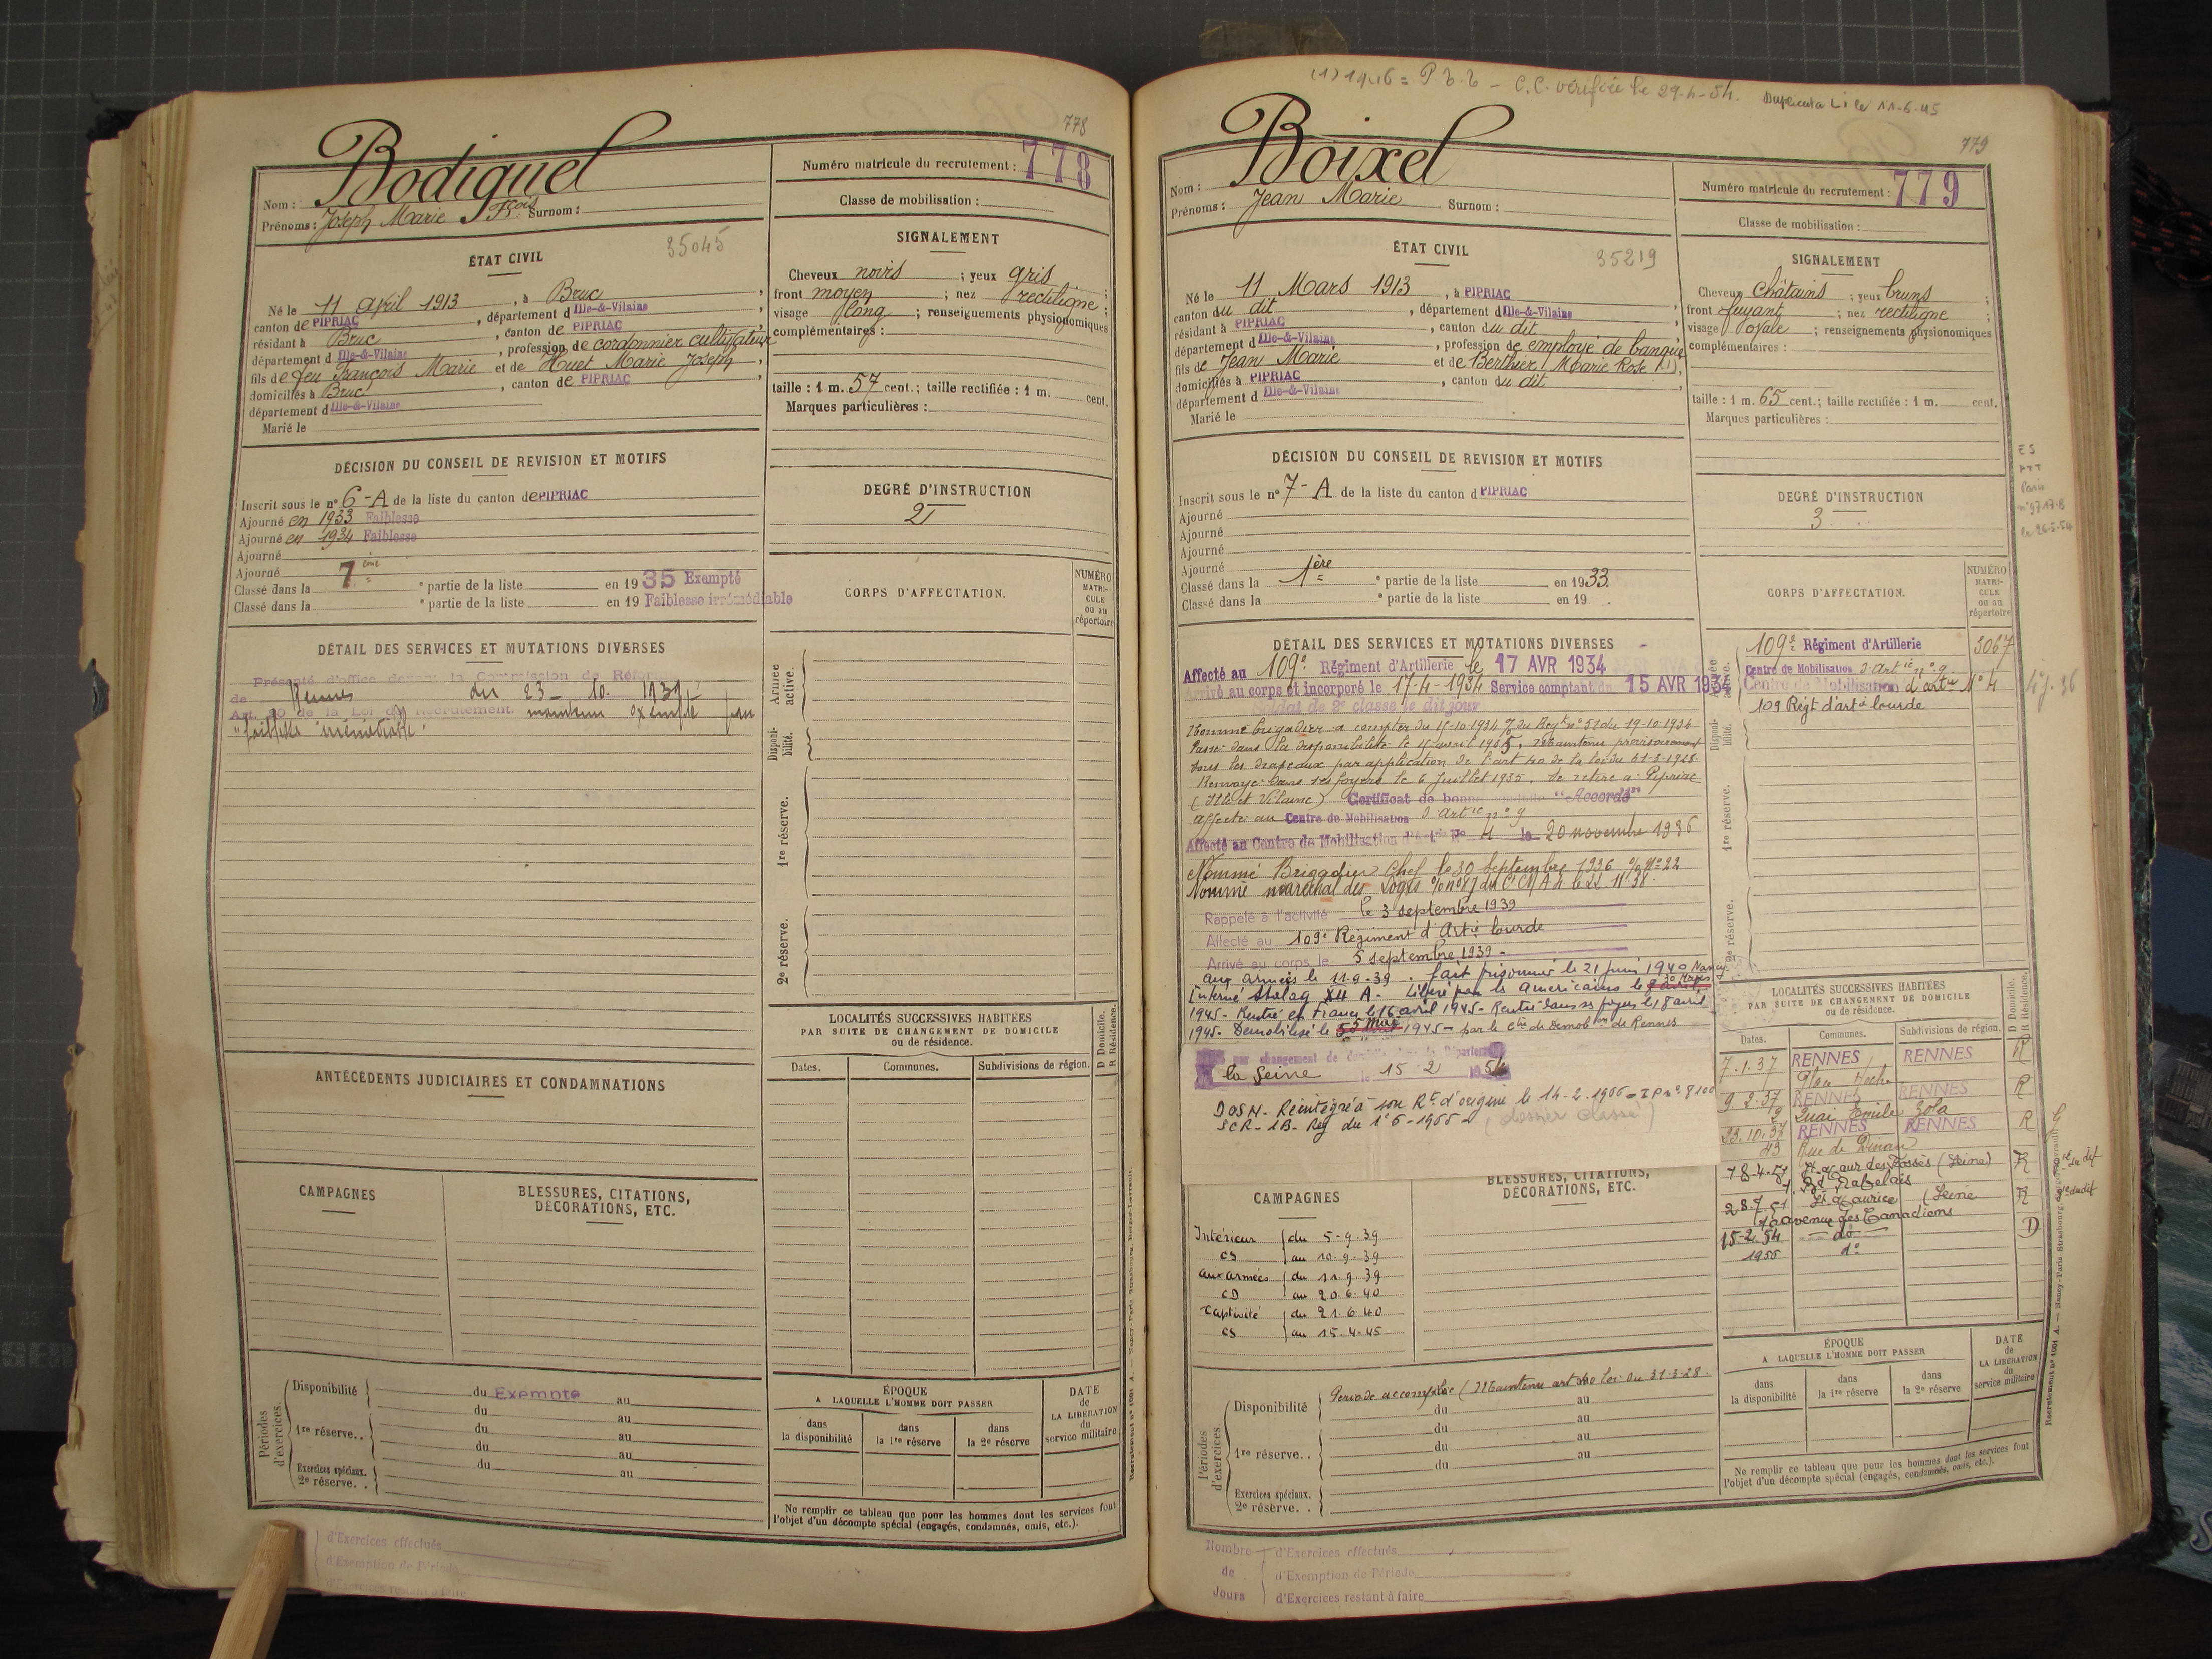 778
Bodiguel
Nom :
Prénoms : Joseph Marie Fçois Surnom :
Numéro matricule du recrutement : 778
Classe de mobilisation :
ÉTAT CIVIL
35045
Né le 11 avril 1913, à Bruc,
canton de PIPRIAC, département d Ille-&-Vilaine
résidant à Bruc, canton de PIPRIAC
département d Ille-&-Vilaine, profession de cordonnier cultivateur
fils de feu François Marie et de Huet Marie Joseph,
domiciliés à Bruc, canton de PIPRIAC,
département d Ille-&-Vilaine
Marié le
SIGNALEMENT
Cheveux noirs ; yeux gris ;
front moyen ; nez rectiligne ;
visage long ; renseignements physionomiques
complémentaires :
taille : 1 m. 57 cent.; taille rectifiée : 1 m. cent.
Marques particulières :
DÉCISION DU CONSEIL DE REVISION ET MOTIFS
Inscrit sous le n° 6-A de la liste du canton de PIPRIAC
Ajourné en 1933 Faiblesse
Ajourné en 1934 Faiblesse
Ajourné
Ajourné
Classé dans la 7ème partie de la liste en 1935 Exempté
Classé dans la partie de la liste en 19 Faiblesse irrémédiable
DEGRÉ D'INSTRUCTION
2
CORPS D'AFFECTATION.
NUMÉRO MATRI-CULE ou au répertoire
DÉTAIL DES SERVICES ET MUTATIONS DIVERSES
Présenté d'office devant la Commission de Réforme
de Rennes du 23-10. 1939
Art. 20 de la Loi de Recrutement. maintenu exempté pour
"faiblesse irrémédiable"
Armée active.
Disponi-bilité.
1re réserve.
2e réserve.
LOCALITÉS SUCCESSIVES HABITÉES
PAR SUITE DE CHANGEMENT DE DOMICILE
ou de résidence.
D Domicile.
R Résidence.
Dates. Communes. Subdivisions de région.
ANTÉCÉDENTS JUDICIAIRES ET CONDAMNATIONS
CAMPAGNES
BLESSURES, CITATIONS,
DÉCORATIONS, ETC.
Périodes d'exercices.
Disponibilité du Exempté au
du au
1re réserve.. du au
du au
Exercices spéciaux. du au
2e réserve. .
ÉPOQUE
A LAQUELLE L'HOMME DOIT PASSER
dans la disponibilité
dans la 1re réserve
dans la 2e réserve
DATE de LA LIBÉRATION du service militaire
Ne remplir ce tableau que pour les hommes dont les services font
l'objet d'un décompte spécial (engagés, condamnés, omis, etc.).
d'Exercices effectués
d'Exemption de Période
d'Exercices restant à faire
C.C. vérifiée le 29-4-54. Duplicata Li le 11-6-45
779
Boixel
Nom :
Prénoms : Jean Marie Surnom :
Numéro matricule du recrutement : 779
Classe de mobilisation :
ÉTAT CIVIL
35219
Né le 11 Mars 1913, à PIPRIAC
canton du dit, département d Ille-&-Vilaine
résidant à PIPRIAC, canton du dit
département d Ille-&-Vilaine, profession de employé de banque
fils de Jean Marie et de Berthier Marie Rose (1),
domiciliés à PIPRIAC, canton du dit,
département d Ille-&-Vilaine
Marié le
SIGNALEMENT
Cheveux châtains ; yeux bruns ;
front fuyant ; nez rectiligne ;
visage ovale ; renseignements physionomiques
complémentaires :
taille : 1 m. 65 cent.; taille rectifiée : 1 m. cent.
Marques particulières :
DÉCISION DU CONSEIL DE REVISION ET MOTIFS
Inscrit sous le n° 7-A de la liste du canton d PIPRIAC
Ajourné
Ajourné
Ajourné
Ajourné
Classé dans la 1ère partie de la liste en 1933.
Classé dans la partie de la liste en 19 .
DEGRÉ D'INSTRUCTION
3
CORPS D'AFFECTATION.
NUMÉRO MATRI-CULE ou au répertoire
109e Régiment d'Artillerie 3067
Centre de Mobilisation d'Artie n° 9
Centre de Mobilisation d'artie N° 4
109 Régt d'artie lourde
DÉTAIL DES SERVICES ET MUTATIONS DIVERSES
Affecté au 109e Régiment d'Artillerie le 17 AVR 1934
Arrivé au corps et incorporé le 17-4-1934 Service comptant du 15 AVR 1934
Soldat de 2e classe le dit jour
Nommé brigadier à compter du 15-10-1934 % du Regt n° 51 du 19-10-1934
Passé dans la disponibilité le 15 avril 1935, maintenu provisoirement
sous les drapeaux par application de l'art 40 de la loi du 31-3-1928
Renvoyé dans ses foyers le 6 Juillet 1935. Se retire à Pipriac
(Ille et Vilaine) Certificat de bonne conduite "Accordé"
affecté au Centre de Mobilisation d'Artie n° 9
Affecté au Centre de Mobilisation d'Artie N° 4 le 20 novembre 1936
Nommé Brigadier Chef le 30 Septembre 1936 % N° 22
Nommé maréchal des Logis % n° 87 du C M A 4 le 22 11 38.
Rappelé à l'activité le 3 septembre 1939
Affecté au 109e Régiment d'Artie lourde
Arrivé au corps le 5 septembre 1939 -
aux armées le 11-9-39. fait prisonnier le 21 juin 1940 Nancy.
Interné Stalag XII A - Libéré par les américains le 30 Mars
1945 - Rentré en France le 16 avril 1945 - Rentré dans ses foyers le 18 avril
1945 - Démobilisé le 5 Mai 1945 - par le Ctre de Démobon de Rennes.
par changement de domicile dans le Département
la Seine le 15 2 1954
DOSN - Réintégré à son Rt d'origine le 14-2-1955
(dossier classé)
Armée active.
Disponi-bilité.
1re réserve.
2e réserve.
LOCALITÉS SUCCESSIVES HABITÉES
PAR SUITE DE CHANGEMENT DE DOMICILE
ou de résidence.
D Domicile.
R Résidence.
Dates. Communes. Subdivisions de région.
7.1.37 RENNES RENNES R
Place Hoche
9.2.37 RENNES RENNES R
2 Quai Emile Zola
23.10.37 RENNES RENNES R
43 Rue de Dinan
18-4-51 St Maur des Fossés (Seine) R
Bd Rabelais
28.7.51 St Maurice (Seine R
10 avenue des Canadiens
15-2-54 do D
1955 do
CAMPAGNES
BLESSURES, CITATIONS,
DÉCORATIONS, ETC.
Intérieur du 5-9-39
CS au 10-9-39
aux armées du 11.9.39
CD au 20.6.40
Captivité du 21.6.40
CS au 15.4.45
Périodes d'exercices
Disponibilité Période accomplie (Maintenu art 40 loi du 31-3-28.
du au
du au
1re réserve.. du au
du au
Exercices spéciaux.
2e réserve. .
ÉPOQUE
A LAQUELLE L'HOMME DOIT PASSER
dans la disponibilité
dans la 1re réserve
dans la 2e réserve
DATE de LA LIBÉRATION du service militaire
Ne remplir ce tableau que pour les hommes dont les services font
l'objet d'un décompte spécial (engagés, condamnés, omis, etc.).
Nombre de Jours
d'Exercices effectués
d'Exemption de Période
d'Exercices restant à faire